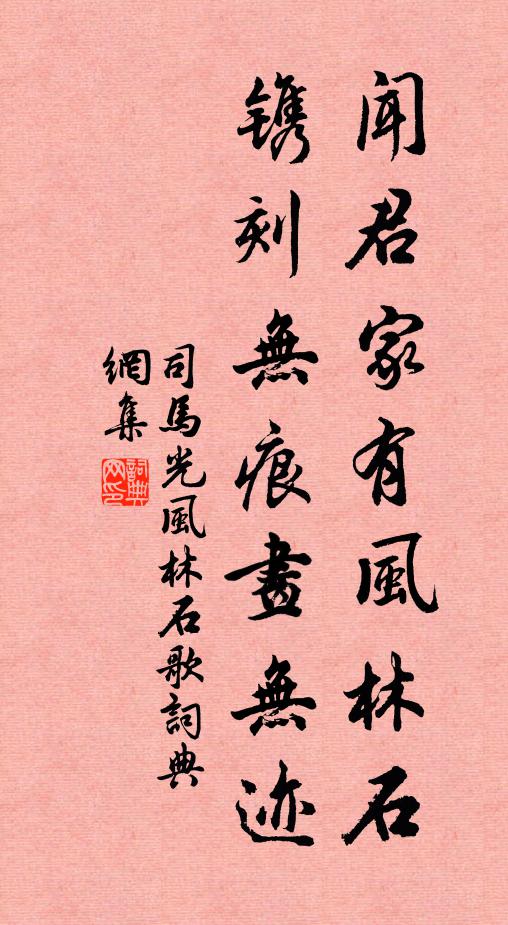 闻君家有風林石
镌刻無痕畫無迹
司馬光風林石歌詞典
網集
詞典
网印